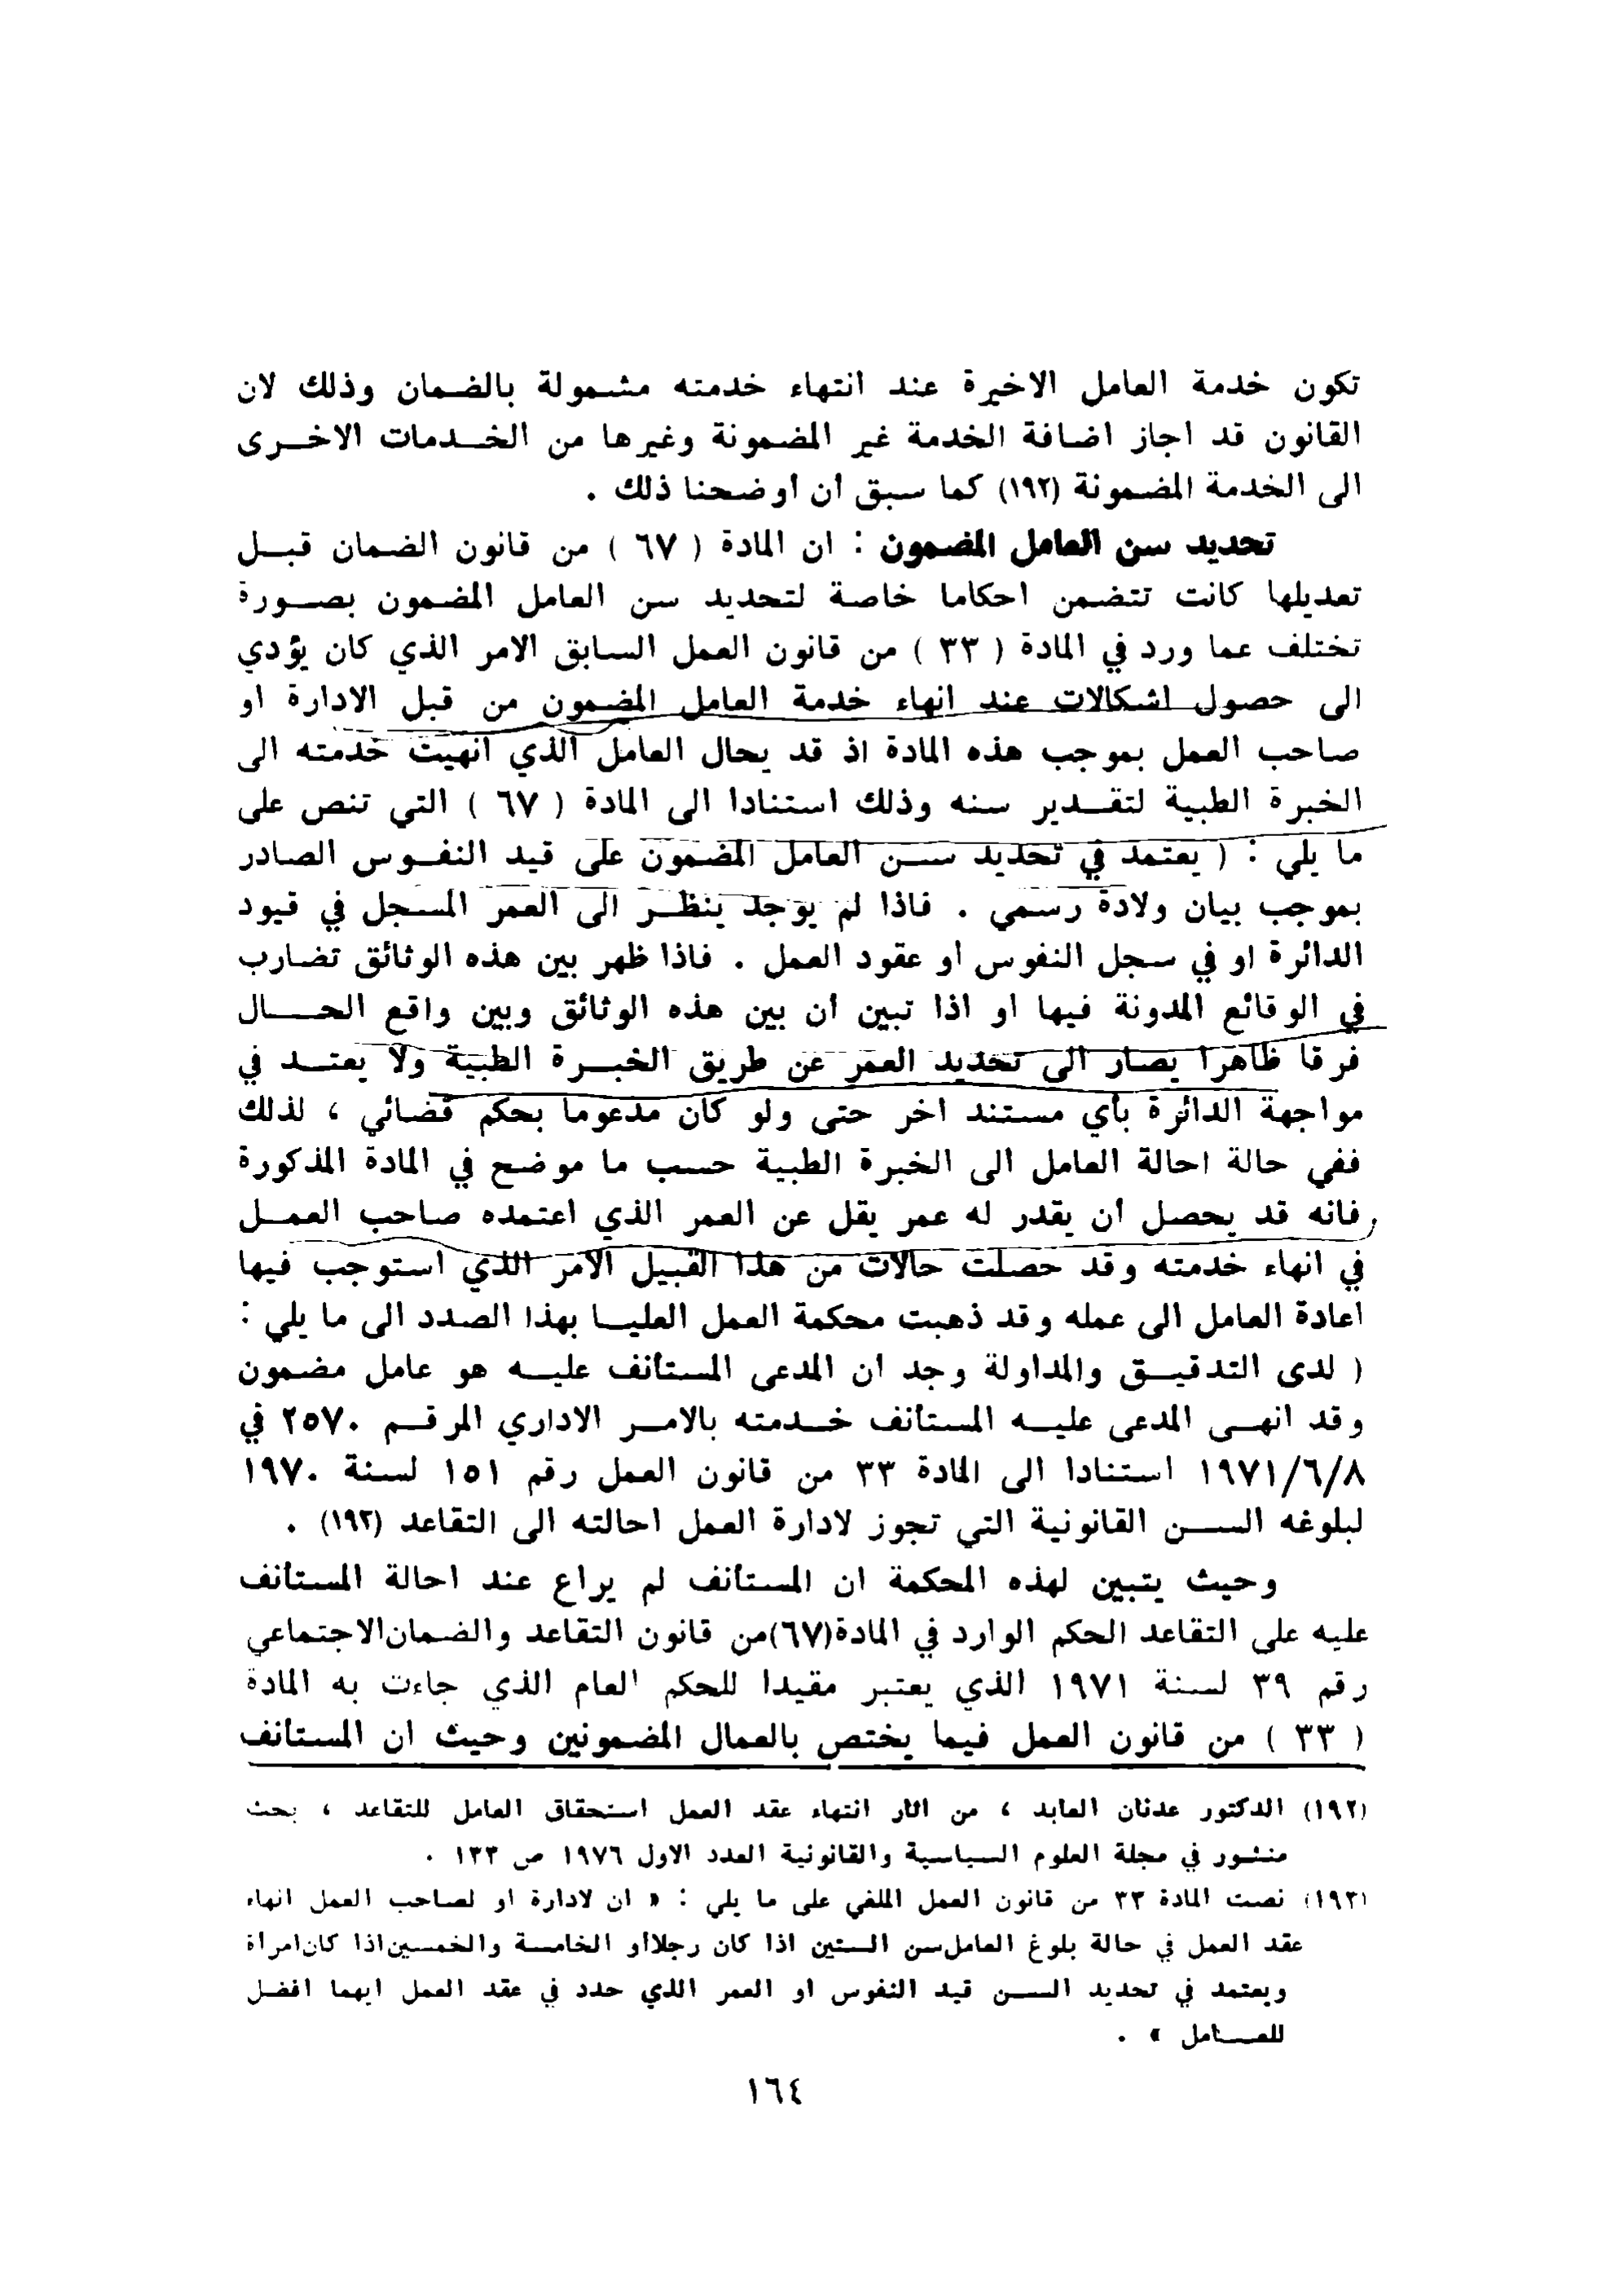 تكون خدمة العامل الاخيرة عند انتهاء خدمته مشمولة بالضمان وذلك لان
القانون قد اجاز اضافة الخدمة غير المضمونة وغيرها من الخدمات الاخرى
الى الخدمة المضمونة (١٩٢) كما سبق ان أوضحنا ذلك .
تحديد سن العامل المضمون : ان المادة ( ٦٧ ) من قانون الضمان قبل
تعديلها كانت تتضمن احكاما خاصة لتحديد سن العامل المضمون بصورة
تختلف عما ورد في المادة ( ٣٣ ) من قانون العمل السابق الامر الذي كان يؤدي
الى حصول اشكالات عند انهاء خدمة العامل المضمون من قبل الادارة او
صاحب العمل بموجب هذه المادة اذ قد يحال العامل الذي انهيت خدمته الى
الخبرة الطبية لتقدير سنه وذلك استنادا الى المادة ( ٦٧ ) التي تنص على
ما يلي : ( يعتمد في تحديد سن العامل المضمون على قيد النفوس الصادر
بموجب بيان ولادة رسمي . فاذا لم يوجد ينظر الى العمر المسجل في قيود
الدائرة او في سجل النفوس أو عقود العمل . فاذا ظهر بين هذه الوثائق تضارب
في الوقائع المدونة فيها او اذا تبين ان بين هذه الوثائق وبين واقع الحال
فرقا ظاهرا يصار الى تحديد العمر عن طريق الخبرة الطبية ولا يعتد في
مواجهة الدائرة بأي مستند اخر حتى ولو كان مدعوما بحكم قضائي ، لذلك
ففي حالة احالة العامل الى الخبرة الطبية حسب ما موضح في المادة المذكورة
فانه قد يحصل ان يقدر له عمر يقل عن العمر الذي اعتمده صاحب العمل
في انهاء خدمته وقد حصلت حالات من هذا القبيل الامر الذي استوجب فيها
اعادة العامل الى عمله وقد ذهبت محكمة العمل العليا بهذا الصدد الى ما يلي :
( لدى التدقيق والمداولة وجد ان المدعى المستأنف عليه هو عامل مضمون
وقد انهى المدعى عليه المستأنف خدمته بالامر الاداري المرقم ٢٥٧٠ في
١٩٧١/٦/٨ استنادا الى المادة ٣٣ من قانون العمل رقم ١٥١ لسنة ١٩٧٠
لبلوغه السن القانونية التي تجوز لادارة العمل احالته الى التقاعد (١٩٣) .
وحيث يتبين لهذه المحكمة ان المستأنف لم يراع عند احالة المستأنف
عليه على التقاعد الحكم الوارد في المادة(٦٧)من قانون التقاعد والضمان الاجتماعي
رقم ٣٩ لسنة ١٩٧١ الذي يعتبر مقيدا للحكم العام الذي جاءت به المادة
( ٣٣ ) من قانون العمل فيما يختص بالعمال المضمونين وحيث ان المستأنف
(١٩٢) الدكتور عدنان العابد ، من اثار انتهاء عقد العمل استحقاق العامل للتقاعد ، بحث
منشور في مجلة العلوم السياسية والقانونية العدد الاول ١٩٧٦ ص ١٣٣ .
(١٩٣) نصت المادة ٣٣ من قانون العمل الملغي على ما يلي : « ان لادارة او لصاحب العمل انهاء
عقد العمل في حالة بلوغ العامل سن الستين اذا كان رجلا أو الخامسة والخمسين اذا كان امرأة
ويعتمد في تحديد السن قيد النفوس او العمر الذي حدد في عقد العمل ايهما افضل
للعامل » .
١٦٤